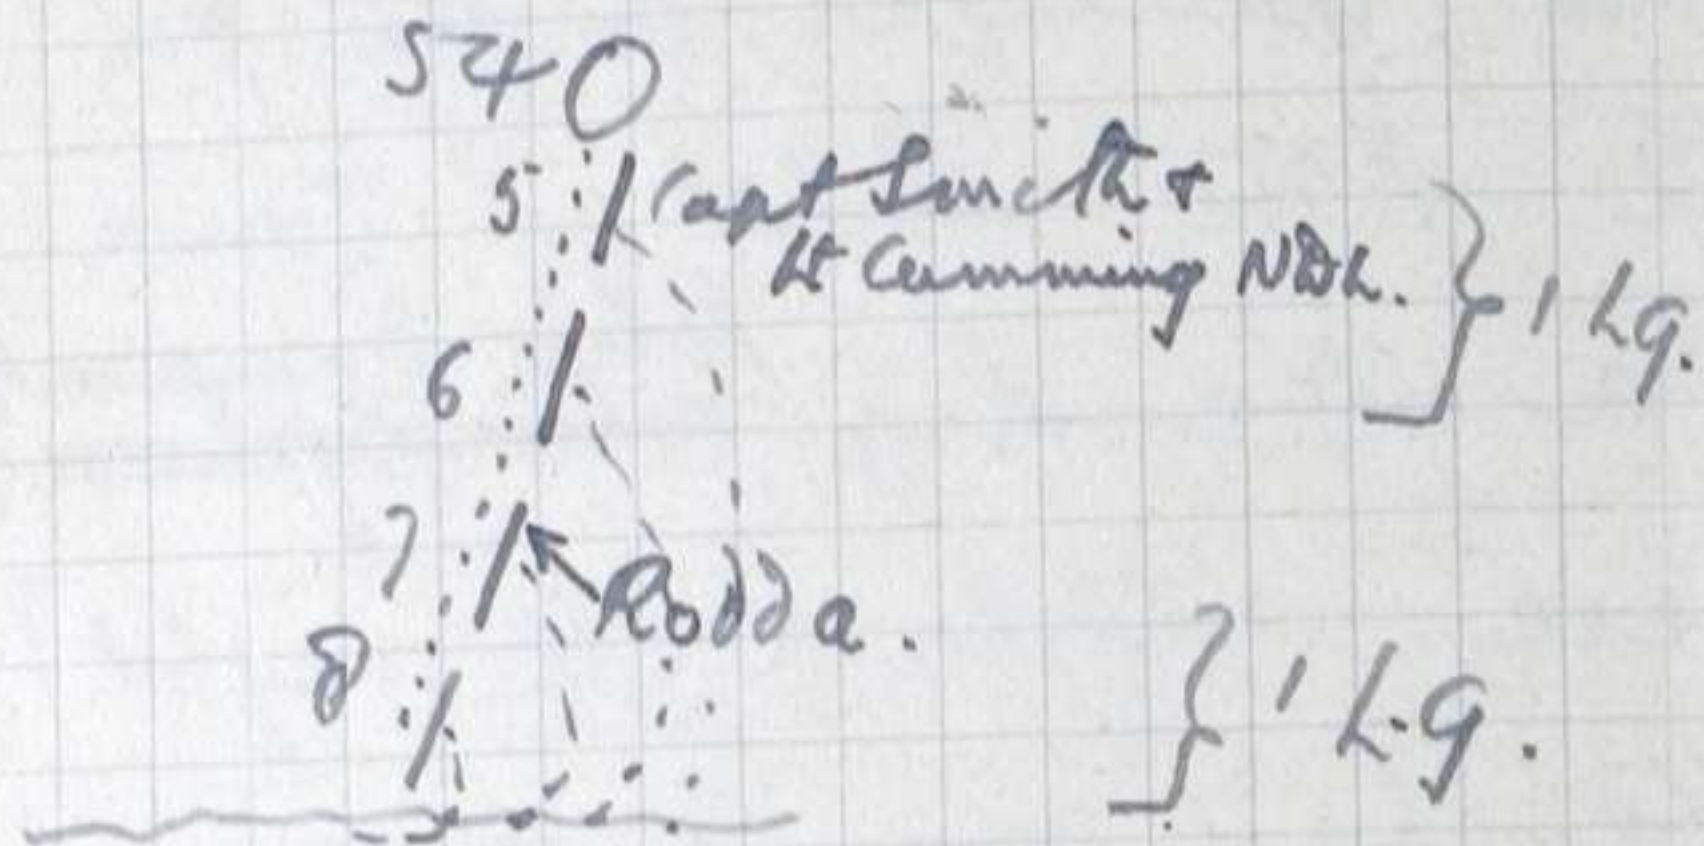 540
5 Capt Smith &
Lt Cumming NDh.
} 1 Lg.
6
7 Rodda.
8
} 1 L.g.